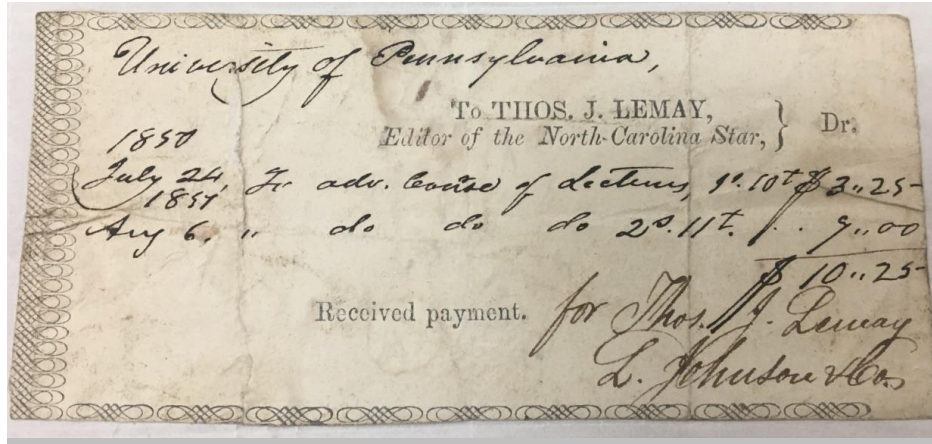 University of Pennsylvania,
To THOS. J. LEMAY,
Editor of the North-Carolina Star, } Dr.
1850
July 24, To adv. Course of Lectures, 1s. 10t $ 3..25
1851
Aug 6. " do do do 2s. 11t. . . 7..00
$ 10..25
Received payment. for Thos. J. Lemay
L. Johnson & Co.